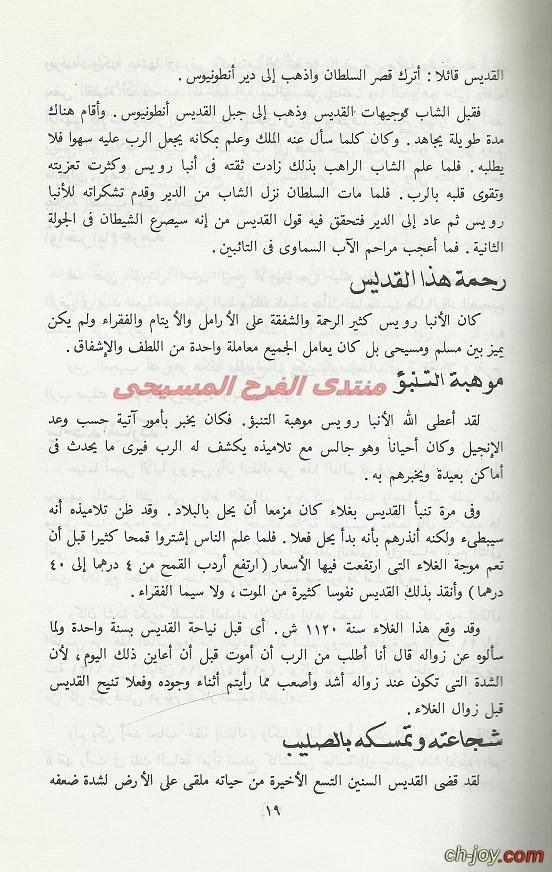 القديس قائلا : أترك قصر السلطان واذهب إلى دير أنطونيوس .
فقبل الشاب توجيهات القديس وذهب إلى جبل القديس أنطونيوس . وأقام هناك
مدة طويلة يجاهد . وكان كلما سأل عنه الملك وعلم بمكانه يجعل الرب عليه سهوا فلا
يطلبه . فلما علم الشاب الراهب بذلك زادت ثقته فى أنبا رويس وكثرت تعزيته
وتقوى قلبه بالرب . فلما مات السلطان نزل الشاب من الدير وقدم تشكراته للأنبا
رويس ثم عاد إلى الدير فتحقق فيه قول القديس من إنه سيصرع الشيطان فى الجولة
الثانية . فما أعجب مراحم الآب السماوى فى التائبين .
رحمة هذا القديس
كان الأنبا رويس كثير الرحمة والشفقة على الأرامل والأيتام والفقراء ولم يكن
يميز بين مسلم ومسيحى بل كان يعامل الجميع معاملة واحدة من اللطف والإشفاق .
موهبة التنبؤ
منتدى الفرح المسيحى
لقد أعطى الله الأنبا رويس موهبة التنبؤ . فكان يخبر بأمور آتية حسب وعد
الإنجيل وكان أحياناً وهو جالس مع تلاميذه يكشف له الرب فيرى ما يحدث فى
أماكن بعيدة ويخبرهم به .
وفى مرة تنبأ القديس بغلاء كان مزمعا أن يحل بالبلاد . وقد ظن تلاميذه أنه
سيبطىء ولكنه أنذرهم بأنه بدأ يحل فعلا . فلما علم الناس إشتروا قمحا كثيرا قبل أن
تعم موجة الغلاء التى ارتفعت فيها الأسعار ( ارتفع أردب القمح من ٤ درهما إلى ٤٠
درهما ) وأنقذ بذلك القديس نفوسا كثيرة من الموت ، ولا سيما الفقراء .
وقد وقع هذا الغلاء سنة ١١٢٠ ش . أى قبل نياحة القديس بسنة واحدة ولما
سألوه عن زواله قال أنا أطلب من الرب أن أموت قبل أن أعاين ذلك اليوم ، لأن
الشدة التى تكون عند زواله أشد وأصعب مما رأيتم أثناء وجوده وفعلا تنيح القديس
قبل زوال الغلاء .
شجاعته وتمسكه بالصليب
لقد قضى القديس السنين التسع الأخيرة من حياته ملقى على الأرض لشدة ضعفه
١٩
ch-joy.com